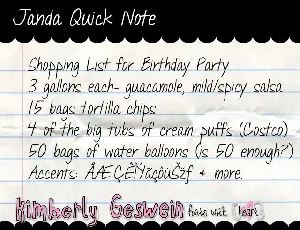 Janda Quick Note
Shopping List for Birthday Party
3 gallons each- guacamole, mild/spicy salsa
15 bags tortilla chips
4 of the big tubs of cream puffs (Costco)
50 bags of water balloons (is 50 enough?)
Accents: ÅÆÇÈÎŸãçõüŠžƒ & more.
Kimberly Geswein fonts with heart